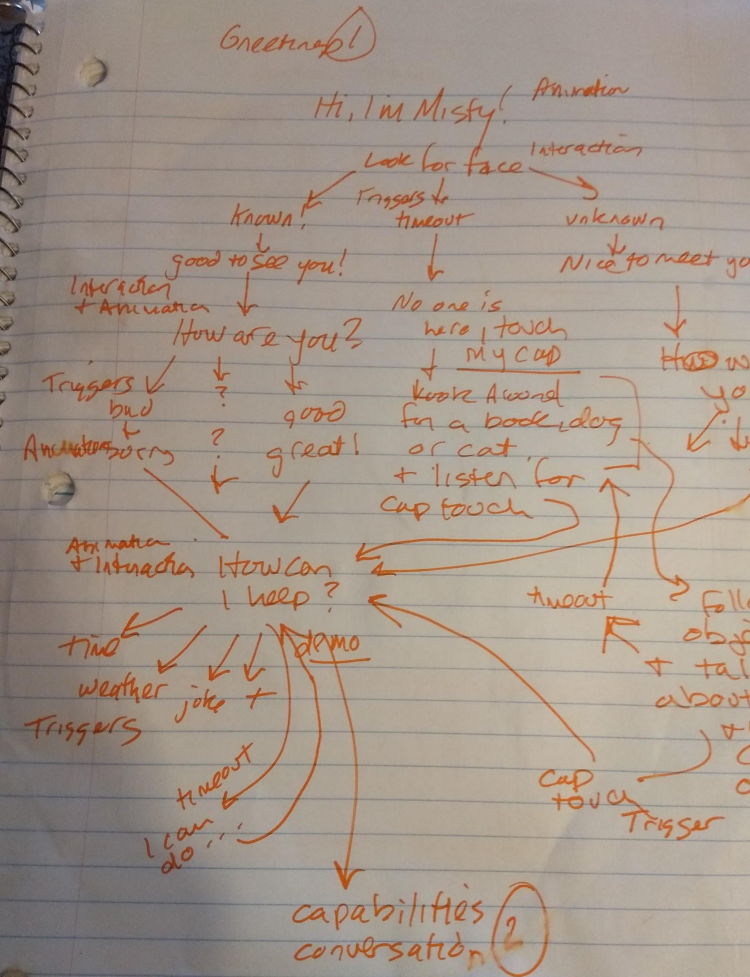 1
Hi, I'm Misty!
Animation
Look for face
Interaction
Known!
Triggers
timeout
unknown
good to see you!
Nice to meet yo
Interaction
+ Animation
How are you?
No one is
here, touch
my cap
Triggers
bad
?
good
Look Around
for a book, dog
or cat
+ listen for
cap touch
yo
sorry
?
great!
Animation
+ Interaction
How can
I help?
timeout
Follo
obj
+ tal
about
time
weather
joke
+
demo
Triggers
timeout
I can
do ...
cap
touch
Trigger
capabilities
conversation
2